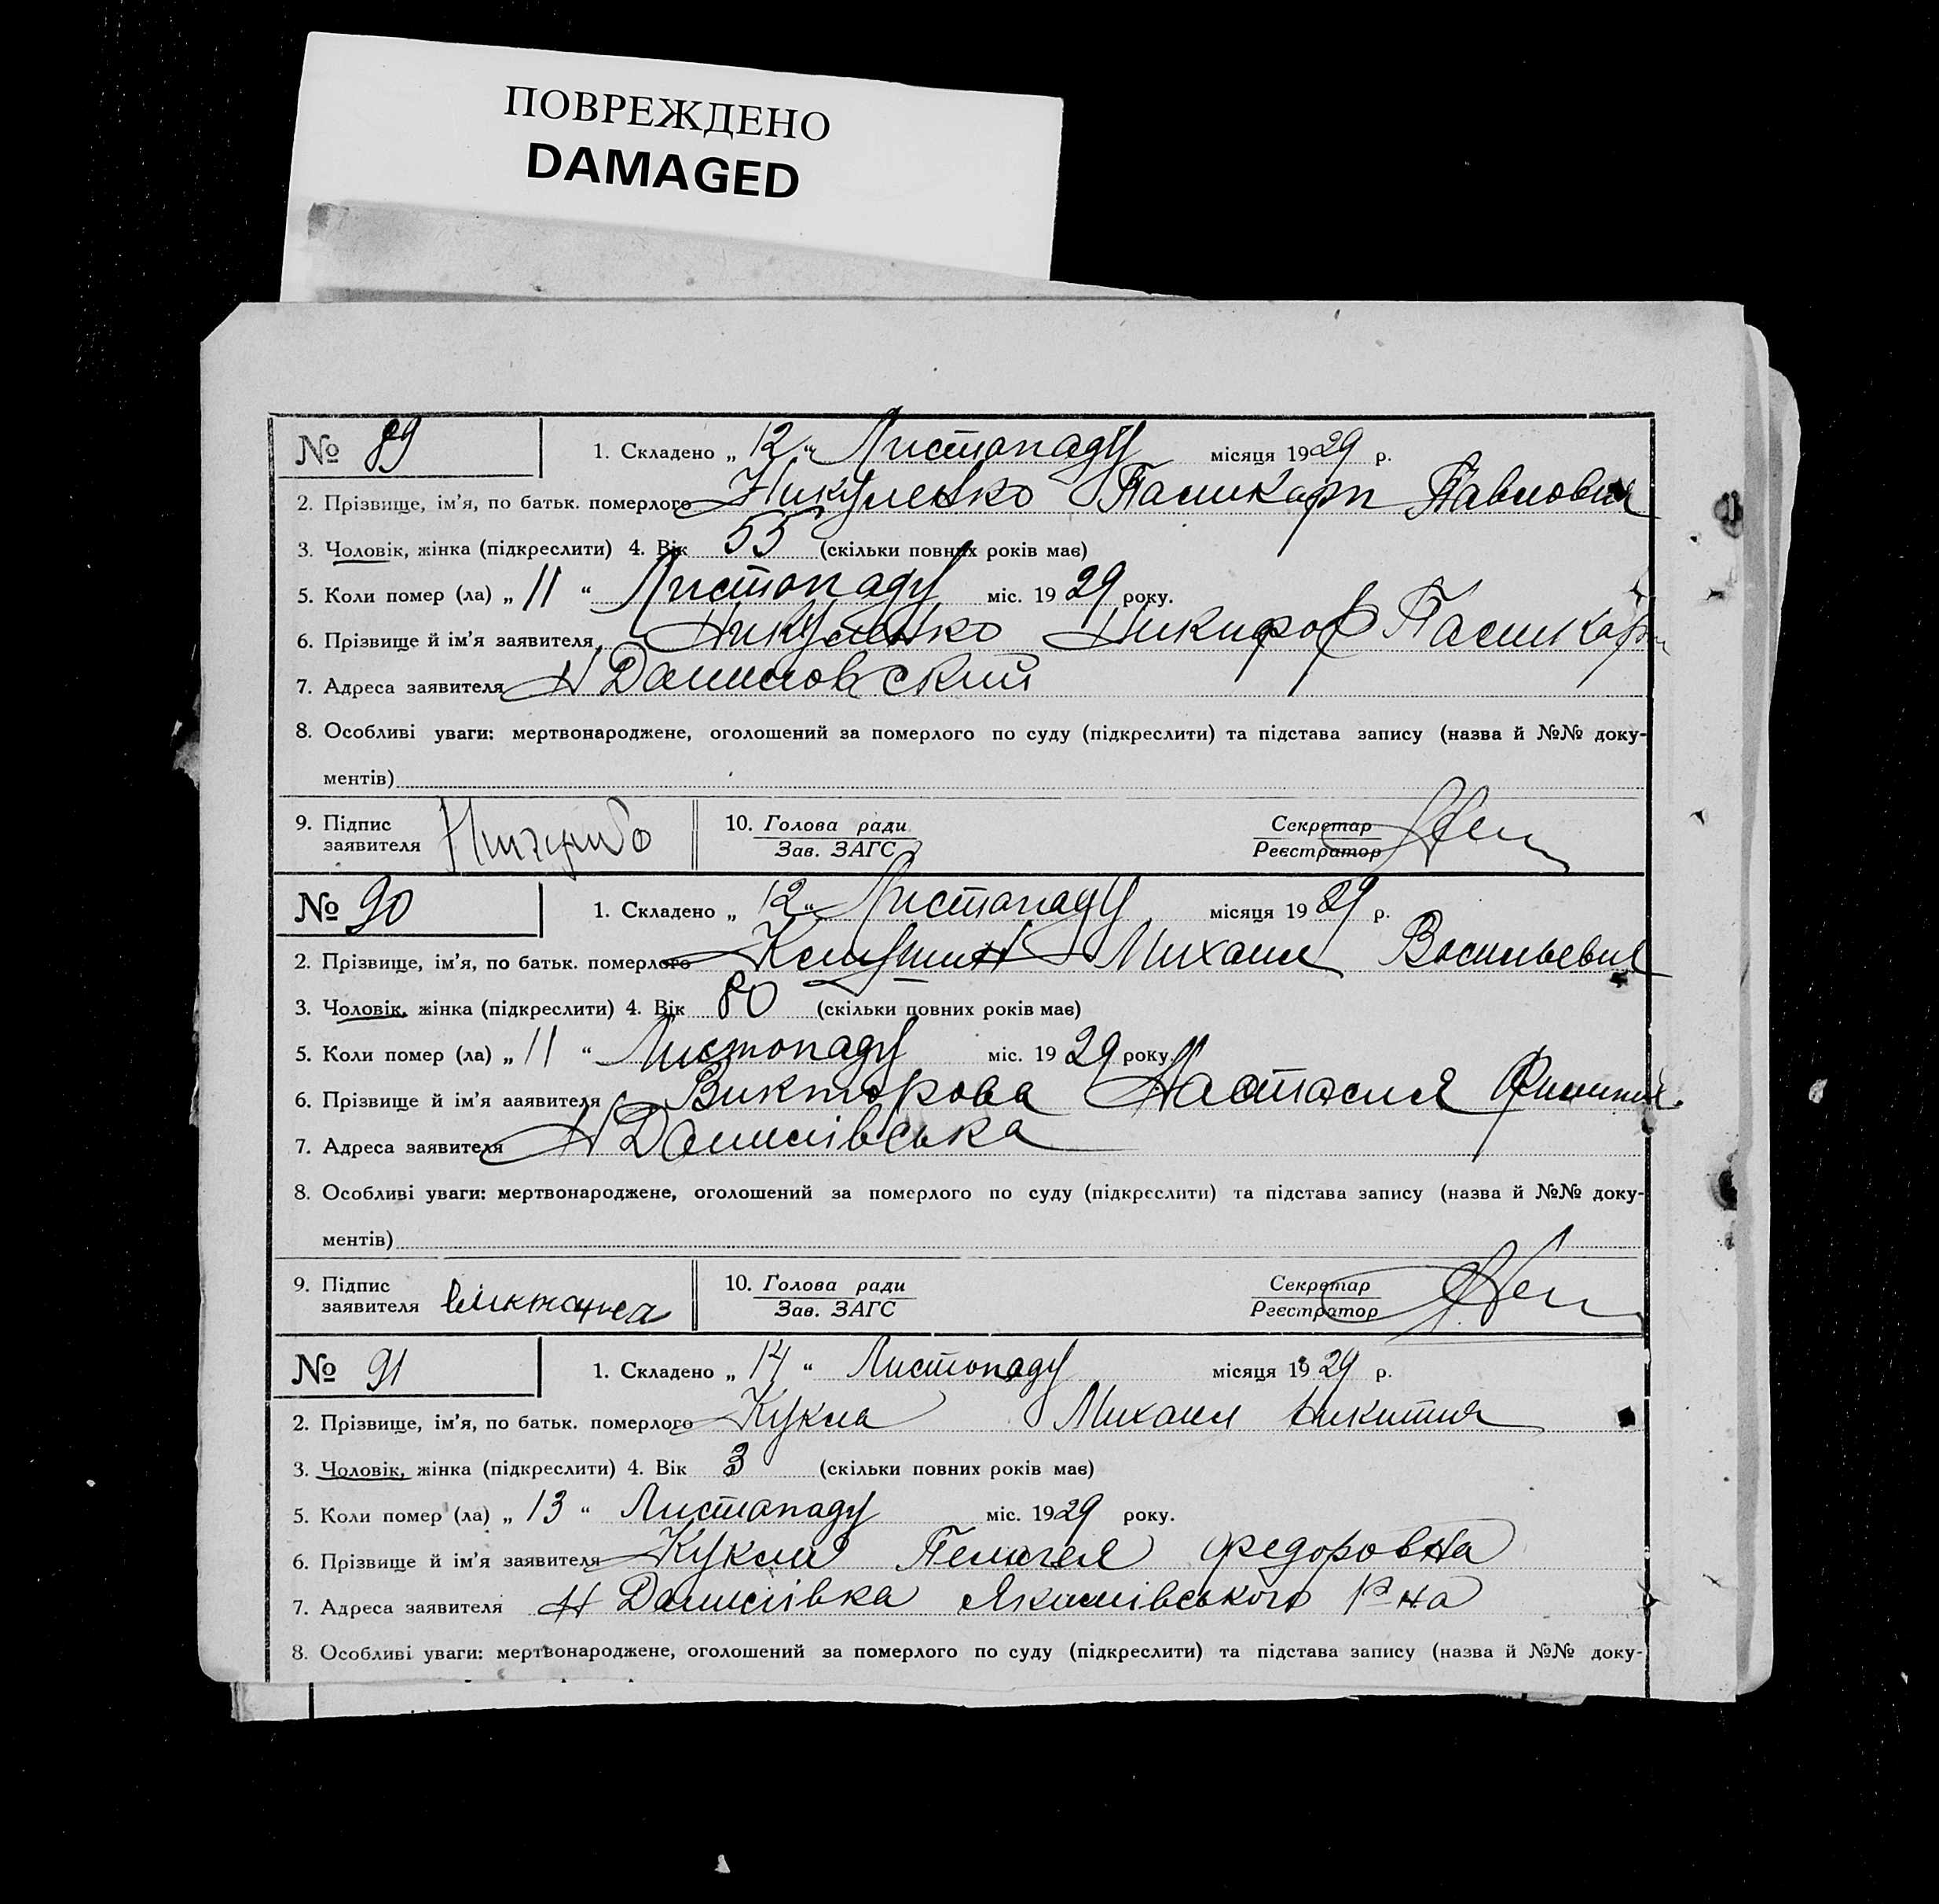 ПОВРЕЖДЕНО
DAMAGED
№ 89 1. Складено „ 12 “ Листопаду місяця 1929 р.
2. Прізвище, ім’я, по батьк. померлого Никуленко Паликарп Павлович
3. Чоловік, жінка (підкреслити) 4. Вік 55 (скільки повних років має)
5. Коли помер (ла) „ 11 “ Листопаду міс. 1929 року.
6. Прізвище й ім’я заявителя Никуленко Никифор Паликарп
7. Адреса заявителя Н Даниловский
8. Особливі уваги: мертвонароджене, оголошений за померлого по суду (підкреслити) та підстава запису (назва й №№ доку-
ментів)
9. Підпис заявителя 10. Голова ради Секретар
Зав. ЗАГС Реєстратор
№ 90 1. Складено „ 12 “ Листопаду місяця 1929 р.
2. Прізвище, ім’я, по батьк. померлого Михаил Васильевич
3. Чоловік, жінка (підкреслити) 4. Вік 80 (скільки повних років має)
5. Коли помер (ла) „ 11 “ Листопаду міс. 1929 року.
6. Прізвище й ім’я ааявителя Викторова Настасия
7. Адреса заявителя Н Данилівська
8. Особливі уваги: мертвонароджене, оголошений за померлого по суду (підкреслити) та підстава запису (назва й №№ доку-
ментів)
9. Підпис заявителя 10. Голова ради Секретар
Зав. ЗАГС Реєстратор
№ 91 1. Складено „ 14 “ Листопаду місяця 1929 р.
2. Прізвище, ім’я, по батьк. померлого Кукла Михаил Никитич
3. Чоловік, жінка (підкреслити) 4. Вік 3 (скільки повних років має)
5. Коли помер (ла) „ 13 “ Листопаду міс. 1929 року.
6. Прізвище й ім’я заявителя Кукла Пелагея Федоровна
7. Адреса заявителя Н Данилівка Якимівського р-на
8. Особливі уваги: мертвонароджене, оголошений за померлого по суду (підкреслити) та підстава запису (назва й №№ доку-